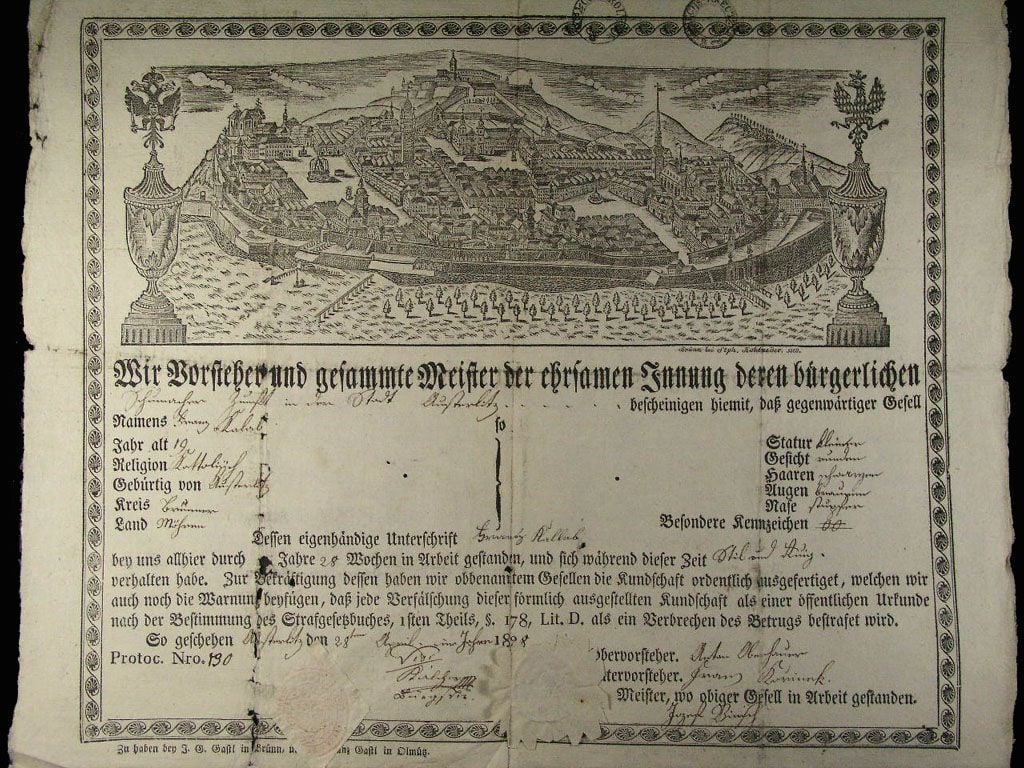 Brünn bei Steph.
Wir Vorsteher und gesammte Meister der ehrsamen Innung deren bürgerlichen
Schumacher Zunft in der Stadt Austerlitz bescheinigen hiemit, daß gegenwärtiger Gesell
Namens Franz Kalab
so
Jahr alt 19
Religion Kattolisch
Gebürtig von Austerlitz
Kreis Brünner
Land Mähren
Statur kleiner
Gesicht runden
Haaren schwarzen
Augen braunen
Nase stumpfer
Besondere Kennzeichen
Dessen eigenhändige Unterschrift Frantz Kallab
bey uns allhier durch Jahre 28 Wochen in Arbeit gestanden, und sich während dieser Zeit Stil und
verhalten habe. Zur Bekräftigung dessen haben wir obbenanntem Gesellen die Kundschaft ordentlich ausgefertiget, welchen wir
auch noch die Warnung beyfügen, daß jede Verfälschung dieser förmlich ausgestellten Kundschaft als einer öffentlichen Urkunde
nach der Bestimmung des Strafgesetzbuches, 1sten Theils, §. 178, Lit. D. als ein Verbrechen des Betrugs bestrafet wird.
So geschehen Austerlitz den 28ten April im Jahre
Protoc. Nro. 130
Obervorsteher. Anton Oberhauer
Untervorsteher. Franz Kominek
Meister, wo obiger Gesell in Arbeit gestanden.
Josef
Zu haben bey J. G. Gastl in Brünn, u. Franz Gastl in Olmütz.